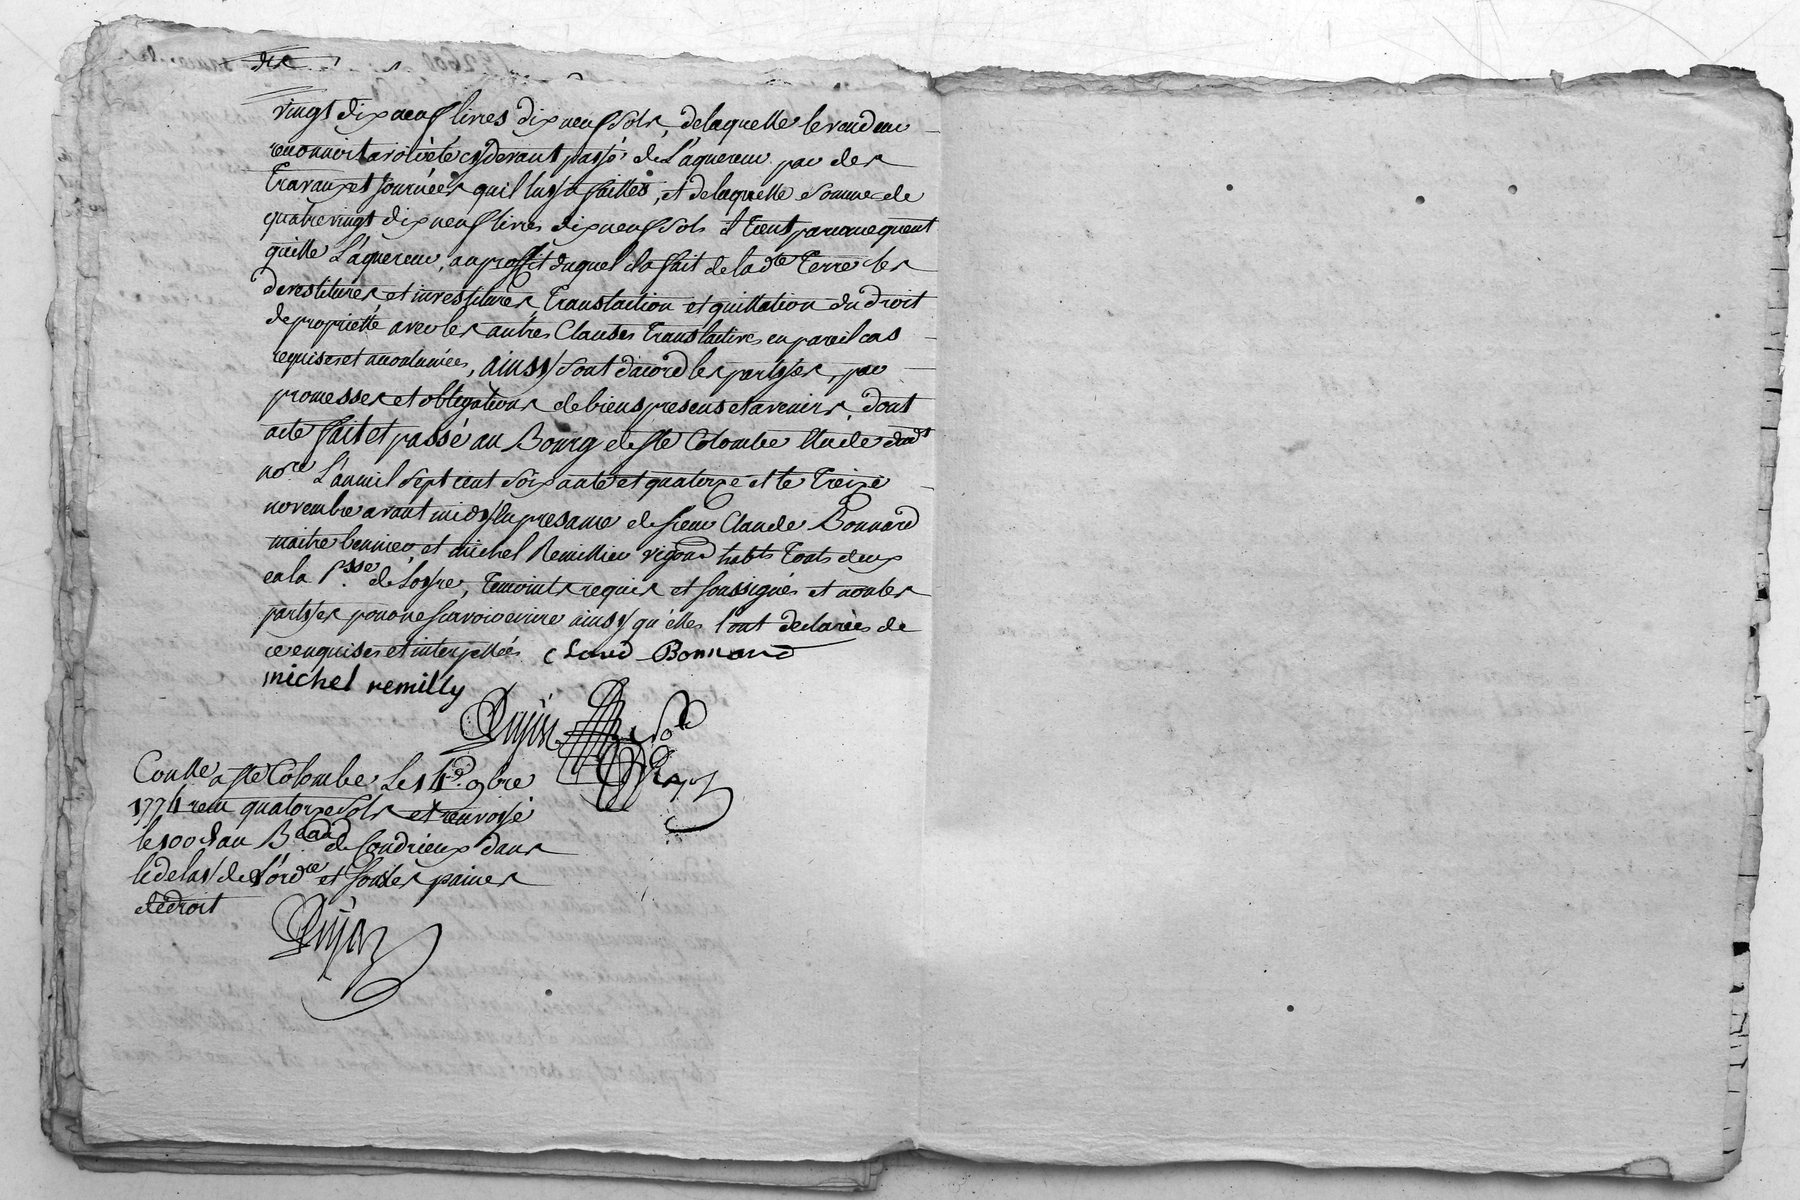 vingt dix neuf livres dix neuf sols, delaquelle le vendeur
reconnoit avoir été cy devant payé de L'aquereur par des
Travaux et journées quil luy a faittes, et delaquelle somme de
quatre vingt dix neuf livres dix neuf sols il tient par consequent
quitte L'aquereur, au proffit duquel il a fait de la dte Terre les
devestitures et investitures, Translaction et quittation du droit
de proprieté avec les autres Clauses Translatives en pareil cas
requises et accoutumées, ainsy sont d'acord les partyes, par
promesses et obligations de biens presens et avenirs, dont
acte fait et passé au Bourg de ste Colombe Etude dudt
nore L'an mil sept cent soixante et quatorze et le Treize
novembre avant midy En presance de sieur Claude Bonnard
maitre et michel Remillieu vigron habts Touts deux
en la psse de Loyre, Temoints requis et soussignés et non les
partyes pour ne scavoir ecrire ainsy qu'elles l'ont declarées de
ce enquises et interpellées Claud Bonnard
michel remilly
Dujin
Conlle a ste Colombe Le 14e 9bre
1774 recu quatorze sols et renvoyé
le 100e au Beau de Condrieux dans
le delay de L'ordce et sous les paines
de droit
Dujin